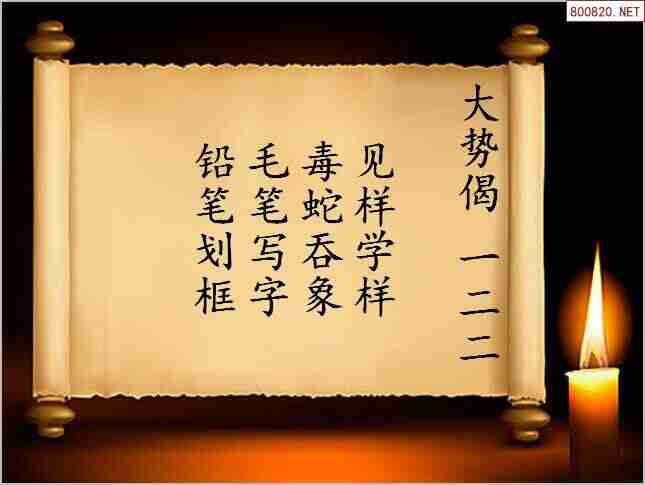 800820.NET
大势偈 一二二
见样学样
毒蛇吞象
毛笔写字
铅笔划框